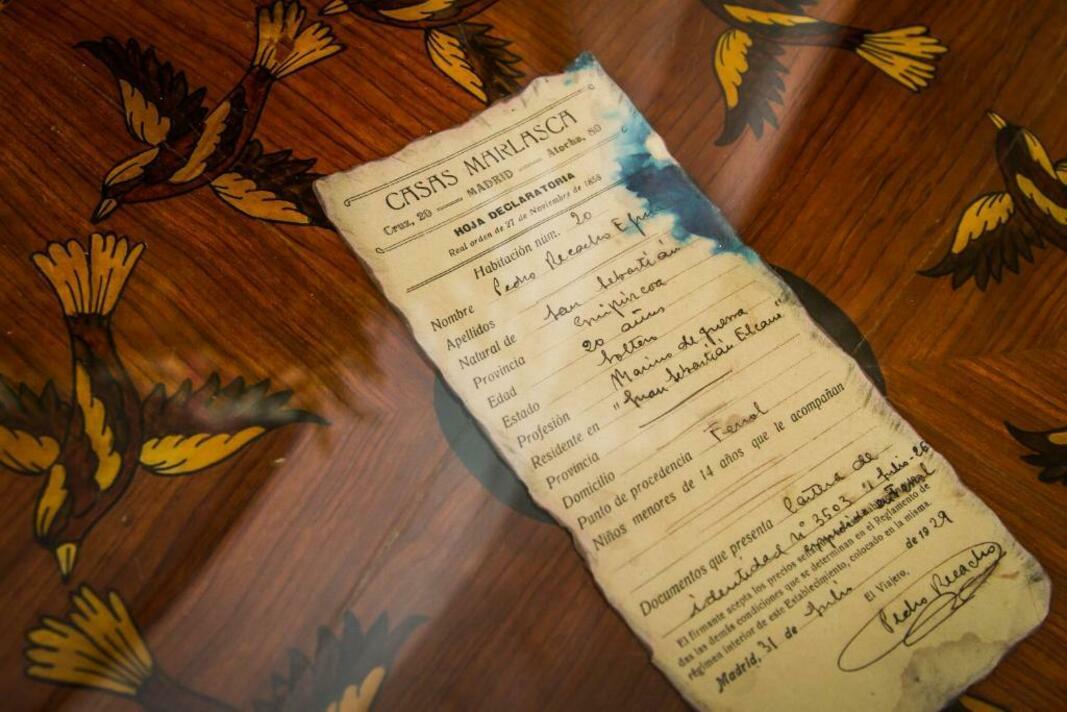 CASAS MARLASCA
Cruz, 20 MADRID Atocha, 80
HOJA DECLARATORIA
Real orden de 27 de Noviembre de 1858
Habitación núm. 20
Nombre Pedro Recacho
Apellidos
Natural de San Sebastián
Provincia Guipúzcoa
Edad 20 años
Estado Soltero
Profesión Marino de guerra
Residente en "Juan Sebastián Elcano"
Provincia
Domicilio
Punto de procedencia Ferrol
Niños menores de 14 años que le acompañan
Documentos que presenta Cartera de
identidad nº 3503 Julio 26
El firmante acepta los precios
das las demás condiciones que se determinan en el Reglamento de
régimen interior de este Establecimiento, colocado en la misma.
Madrid, 31 de Julio de 1929
El Viajero,
Pedro Recacho